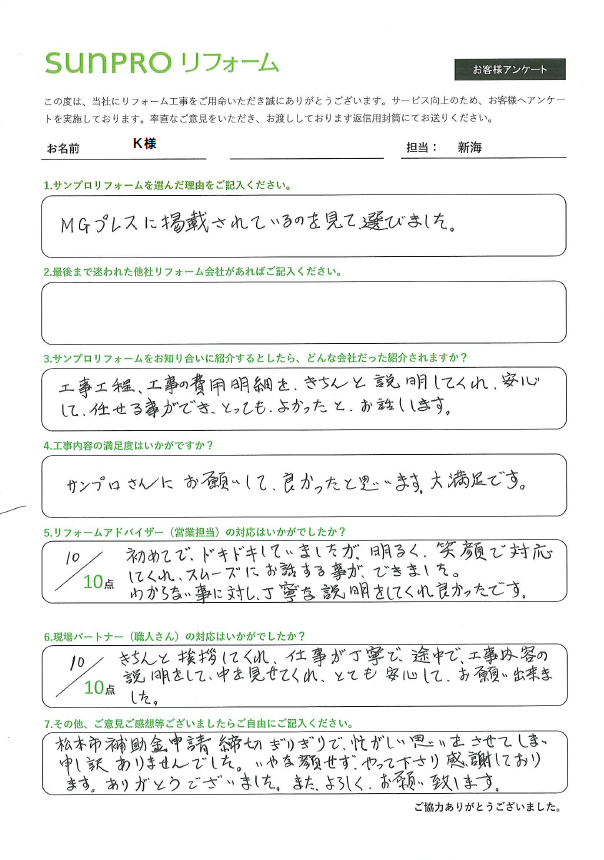 SUNPRO リフォーム
お客様アンケート
この度は、当社にリフォーム工事をご用命いただき誠にありがとうございます。サービス向上のため、お客様へアンケー
トを実施しております。率直なご意見をいただき、お渡ししております返信用封筒にてお送りください。
お名前 K様 担当： 新海
1.サンプロリフォームを選んだ理由をご記入ください。
MGプレスに掲載されているのを見て選びました。
2.最後まで迷われた他社リフォーム会社があればご記入ください。
3.サンプロリフォームをお知り合いに紹介するとしたら、どんな会社だった紹介されますか？
工事工程、工事の費用明細を、きちんと説明してくれ、安心
して、任せる事ができ、とっても、よかったと、お話しします。
4.工事内容の満足度はいかがですか？
サンプロさんに お願いして、良かったと思います。大満足です。
5.リフォームアドバイザー（営業担当）の対応はいかがでしたか？
10/10点
初めてで、ドキドキしていましたが、明るく、笑顔で対応
してくれ、スムーズにお話する事が、できました。
わからない事に対し、丁寧な説明をしてくれ良かったです。
6.現場パートナー（職人さん）の対応はいかがでしたか？
10/10点
きちんと挨拶してくれ、仕事が丁寧で、途中で、工事内容の
説明をして、中を見せてくれ、とても安心して、お願い出来ま
した。
7.その他、ご意見ご感想等ございましたらご自由にご記入ください。
松本市補助金申請締切ぎりぎりで、忙がしい思いをさせてしまい
申し訳ありませんでした。いやな顔せず、やって下さり感謝しており
ます。ありがとうございました。また、よろしく、お願い致します。
ご協力ありがとうございました。